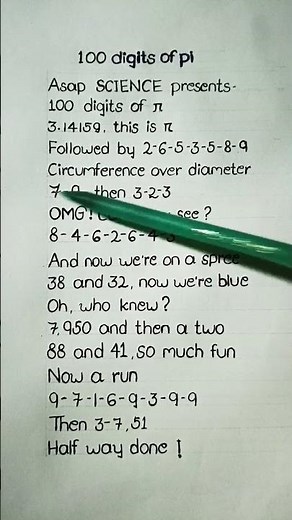 100 digits of pi
Asap SCIENCE presents-
100 digits of π
3.14159, this is π
Followed by 2-6-5-3-5-8-9
Circumference over diameter
7-9, then 3-2-3
OMG! see?
8-4-6-2-6-4-3
And now we're on a spree
38 and 32, now we're blue
Oh, who knew?
7,950 and then a two
88 and 41, so much fun
Now a run
9-7-1-6-9-3-9-9
Then 3-7,51
Half way done!